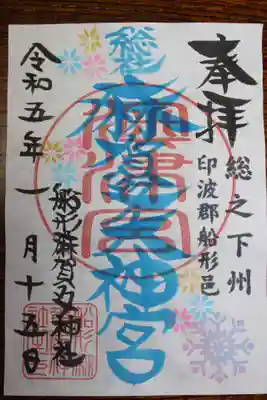 奉拝
総之下州
印波郡船形邑
総社
麻賀多神宮
令和五年一月十五日
船形麻賀多神社